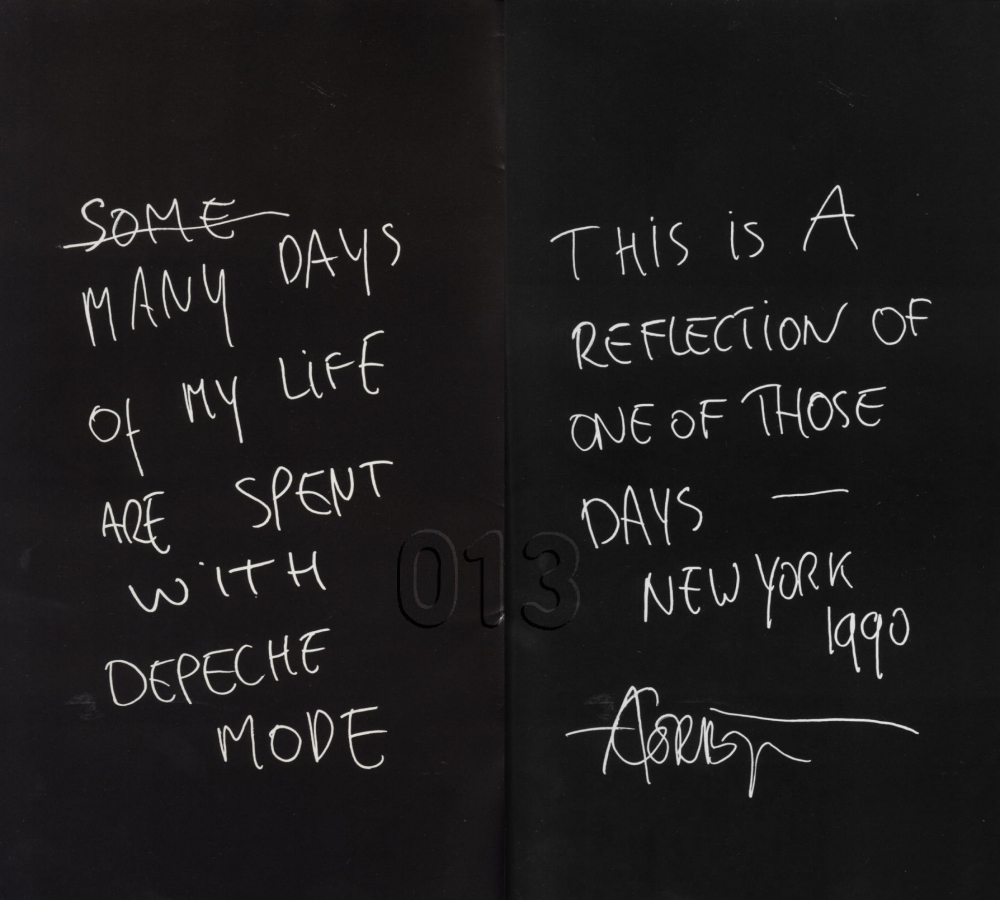 SOME
MANY DAYS
Of MY LiFE
ARE SPENT
WiTH
DEPECHE
MODE
013
THiS iS A
REFLECTiON OF
ONE OF THOSE
DAYS —
NEW YORK
1990